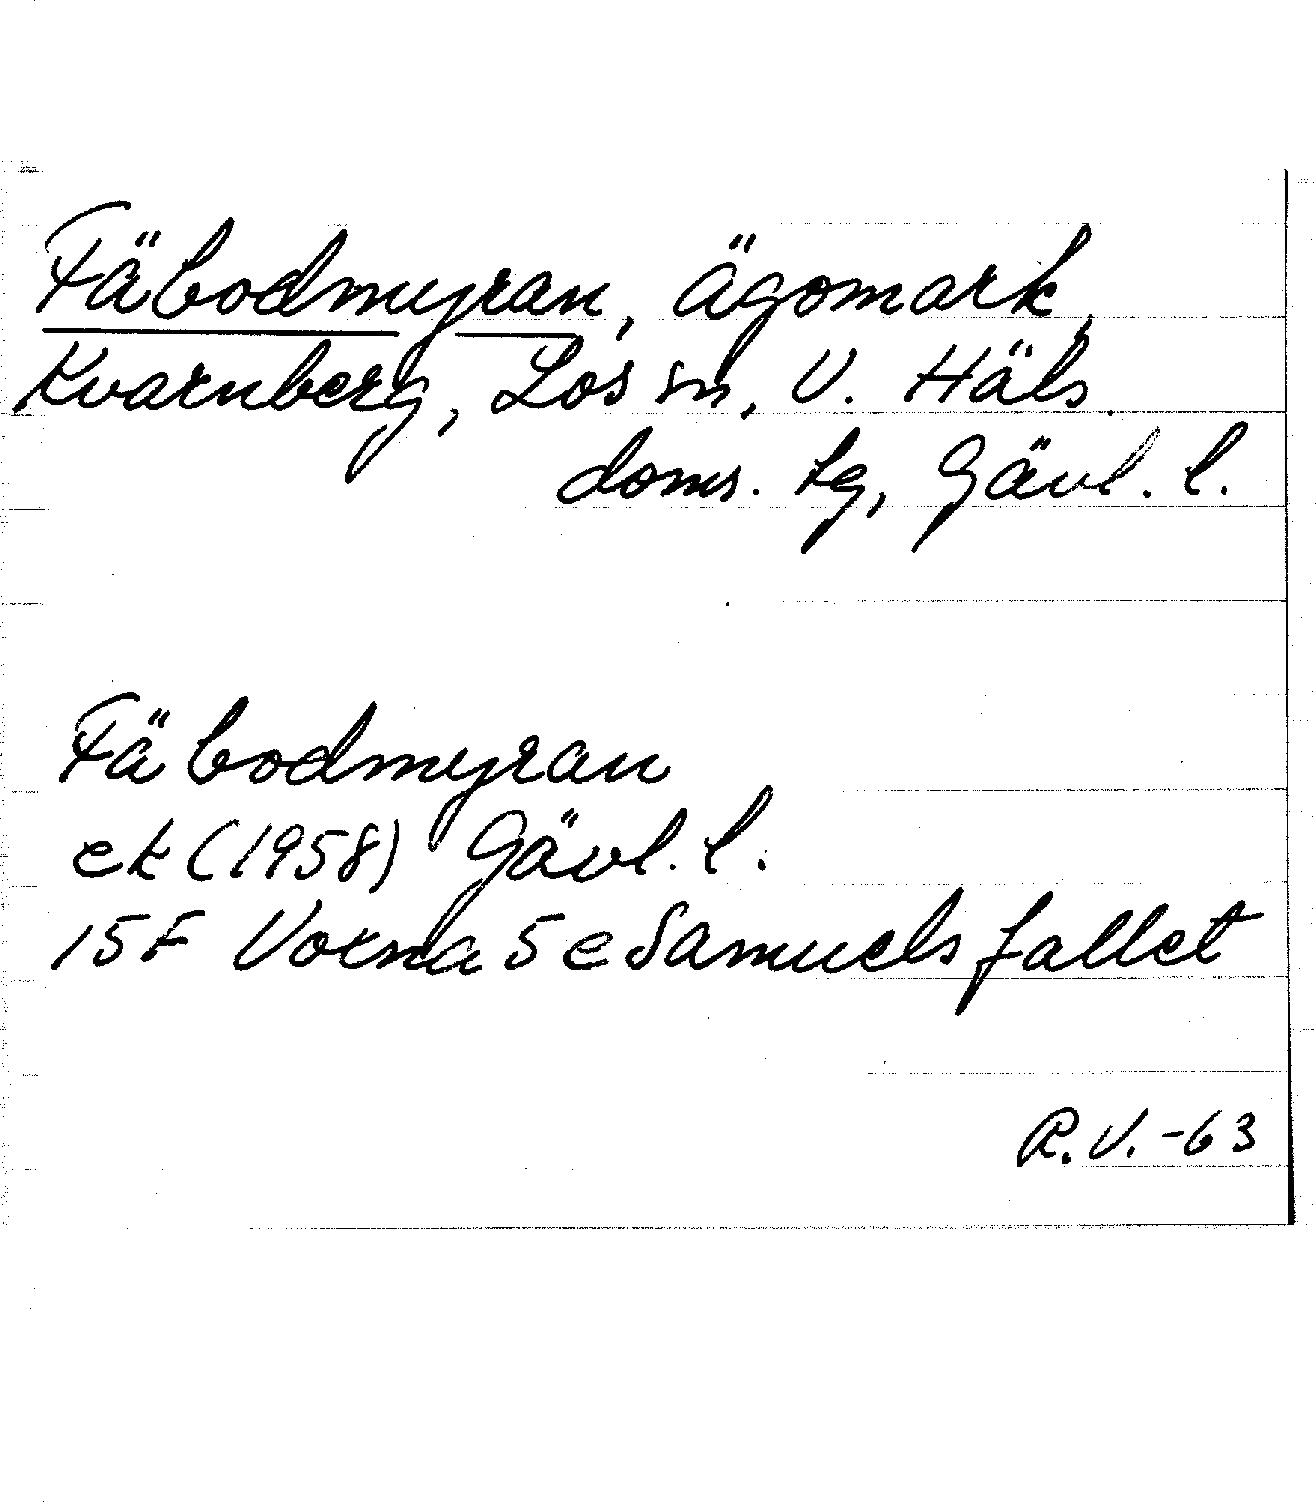 Fäbodmyran, ägomark,
Kvarnberg, Los sn, V. Häls.
doms. tg, Gävl. l.
Fäbodmyran
ek (1958) Gävl. l.
15F Voxna 5 e Samuelsfallet
R.V. -63